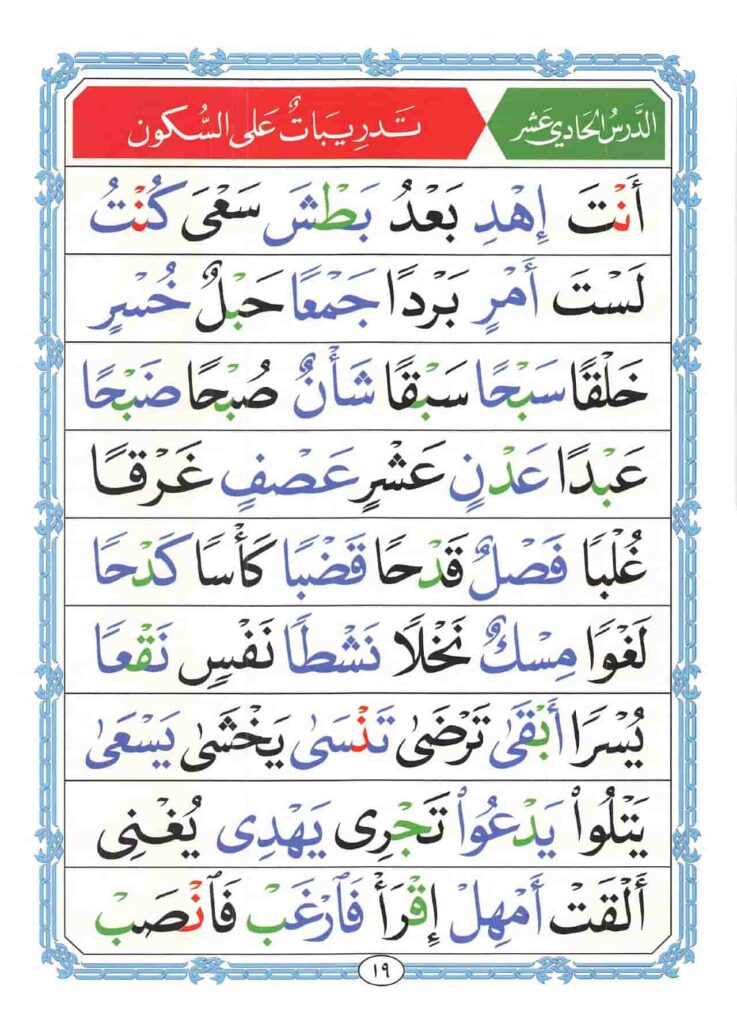 الدَّرسُ الحَادِي عَشَر
تَدرِيبَاتٌ عَلى السُّكون
أَنْتَ إِهْدِ بَعْدُ بَطْشَ سَعْىَ كُنْتُ
لَسْتَ أَمْرٍ بَرْدًا جَمْعًا حَبْلٌ خُسْرٍ
خَلْقًا سَبْحًا سَبْقًا شَأْنٌ صُبْحًا ضَبْحًا
عَبْدًا عَدْنٍ عَشْرٍ عَصْفٍ غَرْقًا
غُلْبًا فَصْلٌ قَدْحًا قَضْبًا كَأْسًا كَدْحًا
لَغْوًا مِسْكٌ نَخْلًا نَشْطًا نَفْسٍ نَقْعًا
يُسْرًا أَبْقَىٰ تَرْضَىٰ تَنْسَىٰ يَخْشَىٰ يَسْعَىٰ
يَتْلُواْ يَدْعُواْ تَجْرِى يَهْدِى يُغْنِى
أَلْقَتْ أَمْهِلْ إِقْرَأْ فَٱرْغَبْ فَٱنْصَبْ
١٩